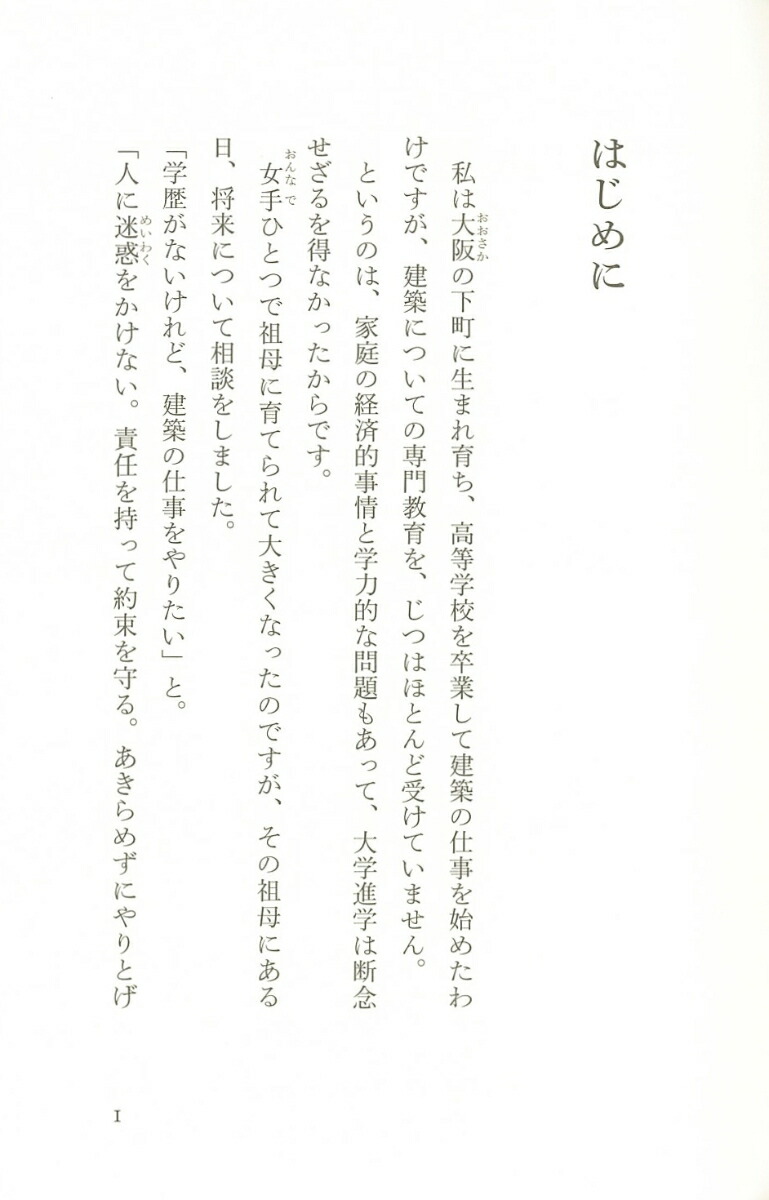 はじめに
私は大阪の下町に生まれ育ち、高等学校を卒業して建築の仕事を始めたわ
おおさか
けですが、建築についての専門教育を、じつはほとんど受けていません。
というのは、家庭の経済的事情と学力的な問題もあって、大学進学は断念
せざるを得なかったからです。
女手ひとつで祖母に育てられて大きくなったのですが、その祖母にある
おんなで
日、将来について相談をしました。
「学歴がないけれど、建築の仕事をやりたい」と。
「人に迷惑をかけない。責任を持って約束を守る。あきらめずにやりとげ
めいわく
1